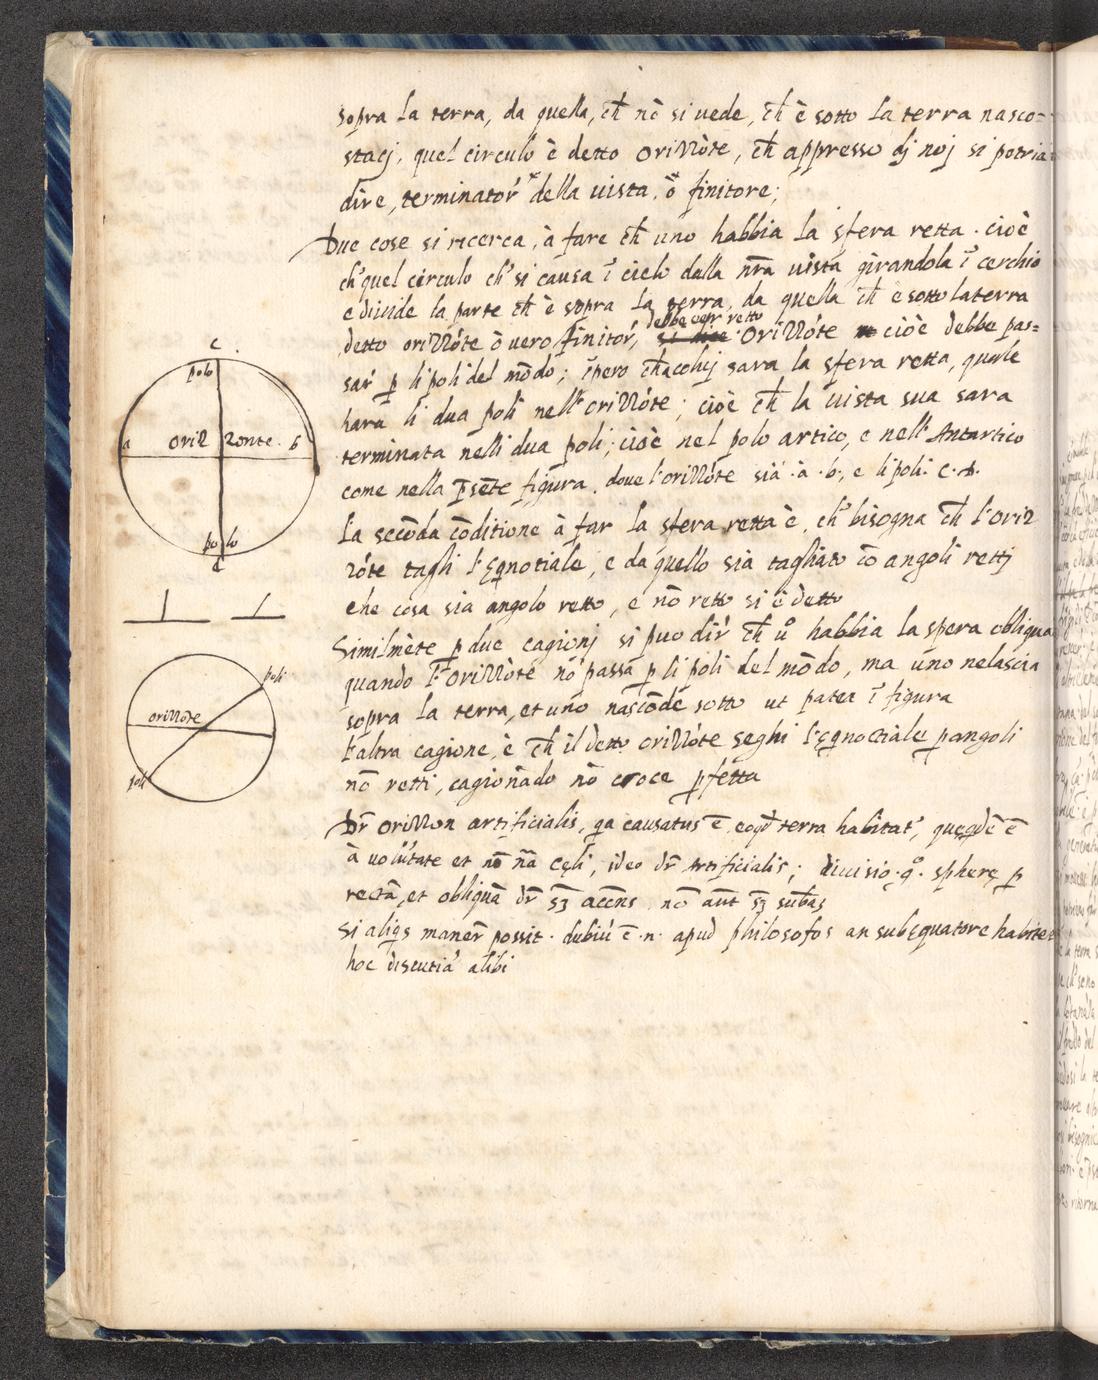 sopra la terra, da quella, ch̄ nō si uede, ch̄ è sotto la terra nasco=
staci, quel circulo è detto orizzōte, ch̄ appresso dj noj si potria
dire, terminator' della uista, ò finitore;
Due cose si ricerca, à fare ch̄ uno habbia la sfera retta · cioè
ch' quel circulo ch' si causa ī cielo dalla nr̄a uista girandola ī cerchio
e diuide la parte ch̄ è sopra la terra, da quella ch̄ è sotto la terra
detto orizzōte ò uero finitor', debbe esser retto orizzōte cioè debbe pas=
sar' p̱ li poli del mōdo; īpero ch̄ acolui sara la sfera retta, quale
hara li dua poli nell'orizzōte; cioè ch̄ la uista sua sara
terminata nelli dua poli; cioè nel polo artico, e nell'Antartico
come nella p̄sēte figura, doue l'orizzōte sia ·a·b·, e li poli· c·d·
La secōda cōditione à far la sfera retta è, ch' bisogna ch̄ l'oriz
zōte tagli l'Eqnotiale, e da quello sia tagliato cō angoli retti
che cosa sia angolo retto, e nō retto si è detto
Similmēte p̱ due cagionj si puo dir' ch̄ ū habbia la spera obliqua
quando l'orizzōte nō passa p̱ li poli del mōdo, ma uno ne lascia
sopra la terra, et uno nascōde sotto ut patet ī figura
l'altra cagione, è ch̄ il detto orizzōte seghi l'Eqnoctiale p̱ angoli
nō retti, cagionādo nō croce p̱fetta
Dr̄ orizzon artificialis, qa causatus ē, eoqđ terra habitat',
à uolūtate et nō celi, ideo dr̄ Artificialis; diuisio q° spherę p̱
rectā, et obliquā dr̄ accn̄s nō aūt
Si aliqs maner' possit · dubiū ē ·n· apud philosofos an sub equatore habitet
hoc discutiā alibi
c
polo
a oriz zonte · b
polo
d
poli
orizzōte
poli